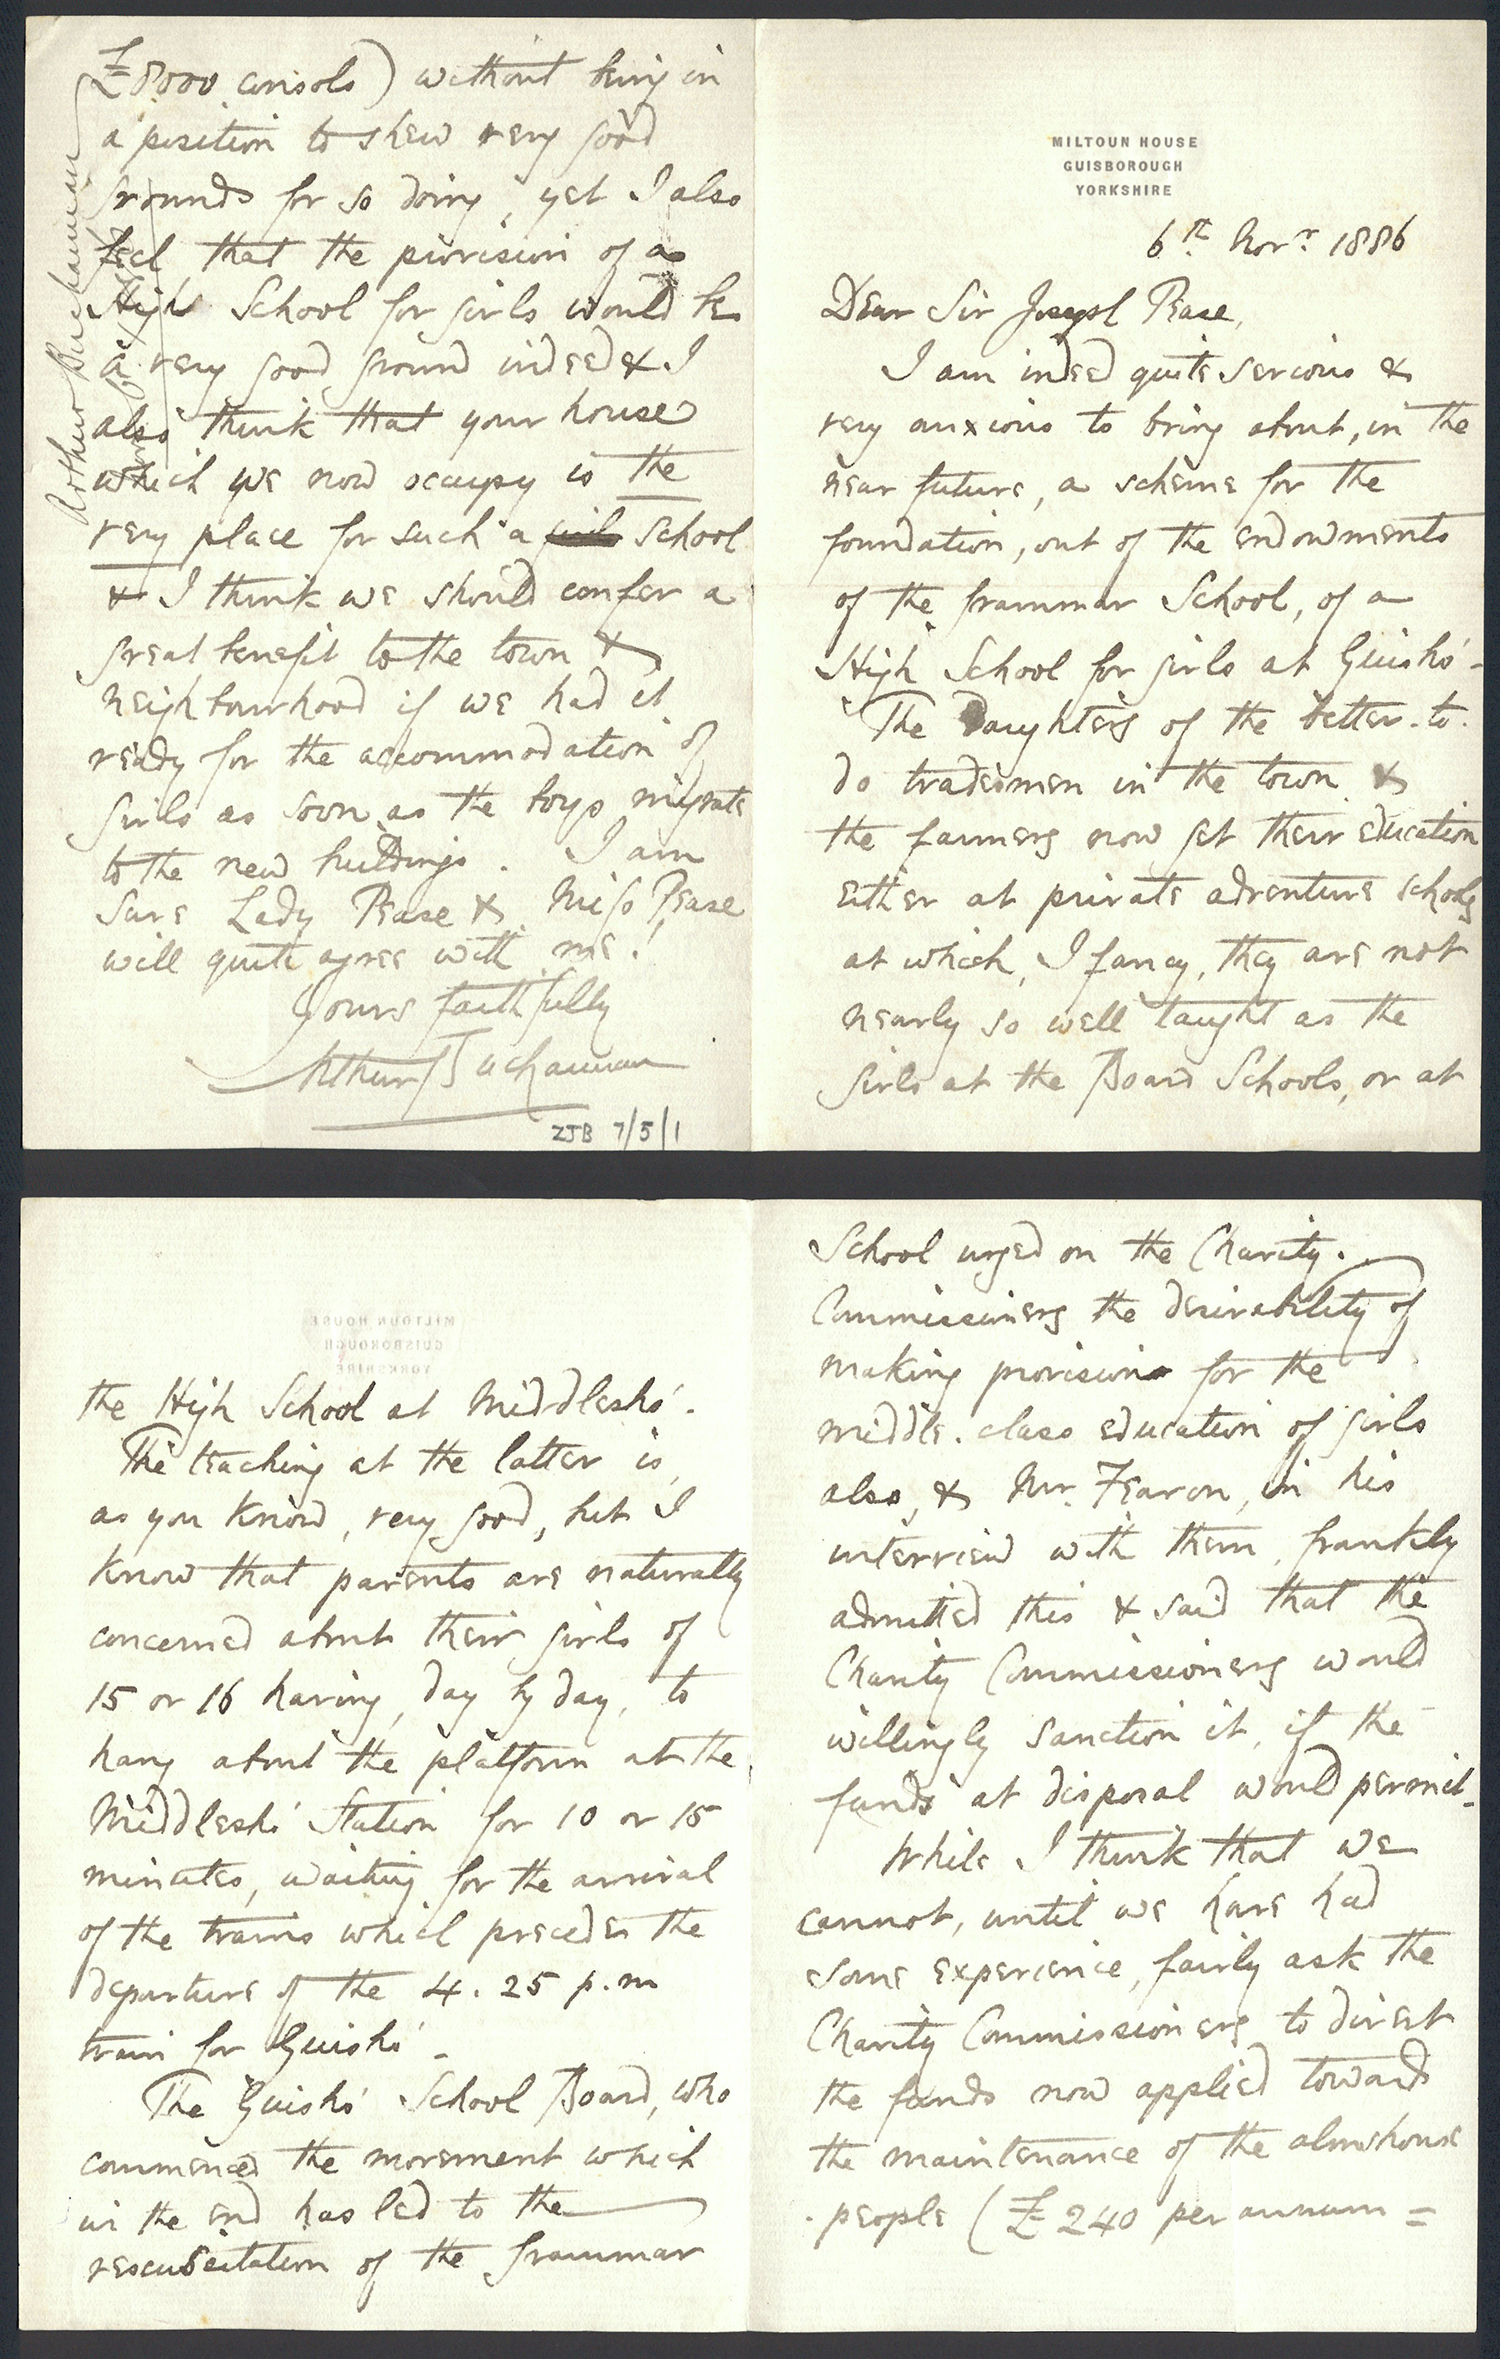 MILTOUN HOUSE
GUISBOROUGH
YORKSHIRE
6th. Novr. 1886
Dear Sir Joseph Pease,
I am indeed quite serious &
very anxious to bring about, in the
near future, a scheme for the
foundation, out of the endowments
of the Grammar School, of a
High School for girls at Guisbo' -
The Daughters of the better-to-
do tradesmen in the town &
the farmers now get their education
either at private adventure schools
at which, I fancy, they are not
nearly so well taught as the
girls at the Board Schools, or at
the High School at Middlesbo'.
The teaching at the latter is,
as you know, very good, but I
know that parents are naturally
concerned about their girls of
15 or 16 having, day by day, to
hang about the platform at the
Middlesbo' Station for 10 or 15
minutes, waiting for the arrival
of the trains which precedes the
departure of the 4.25 p.m
train for Guisbo' -
The Guisbo' School Board, who
commenced the movement which
in the end has led to the
rescuscitation of the Grammar
School urged on the Charity
Commissioners the desirability of
making provision for the
middle-class education of girls
also, & Mr. Fearon, in his
interview with them, frankly
admitted this & said that the
Charity Commissioners would
willingly sanction it, if the
funds at disposal would permit -
While I think that we
cannot, until we have had
some experience, fairly ask the
Charity Commissioners to divert
the funds now applied towards
the maintenance of the almshouse
people (£240 per annum =
£8000 consols) without being in
a position to shew very good
grounds for so doing, yet I also
feel that the provision of a
High School for girls would be
a very good ground indeed & I
also think that your house
which we now occupy is the
very place for such a School
& I think we should confer a
great benefit to the town &
neighbourhood if we had it
ready for the accommodation of
girls as soon as the boys migrate
to the new buildings. I am
sure Lady Pease & Miss Pease
will quite agree with me!
Yours faithfully
Arthur Buchannan
ZJB 7/5/1
Arthur Buchannan
MILTOUN HOUSE
GUISBOROUGH
YORKSHIRE